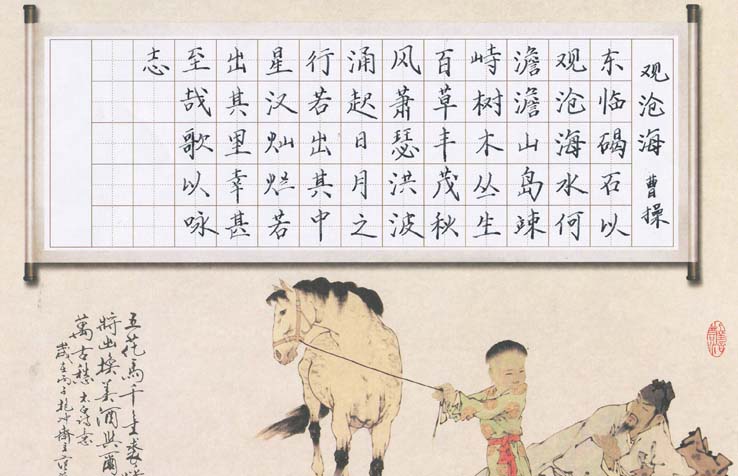 观沧海 曹操
东临碣石以
观沧海水何
澹澹山岛竦
峙树木丛生
百草丰茂秋
风萧瑟洪波
涌起日月之
行若出其中
星汉灿烂若
出其里幸甚
至哉歌以咏
志
五花馬千金裘
將出換美酒與爾
萬古愁 太白诗意